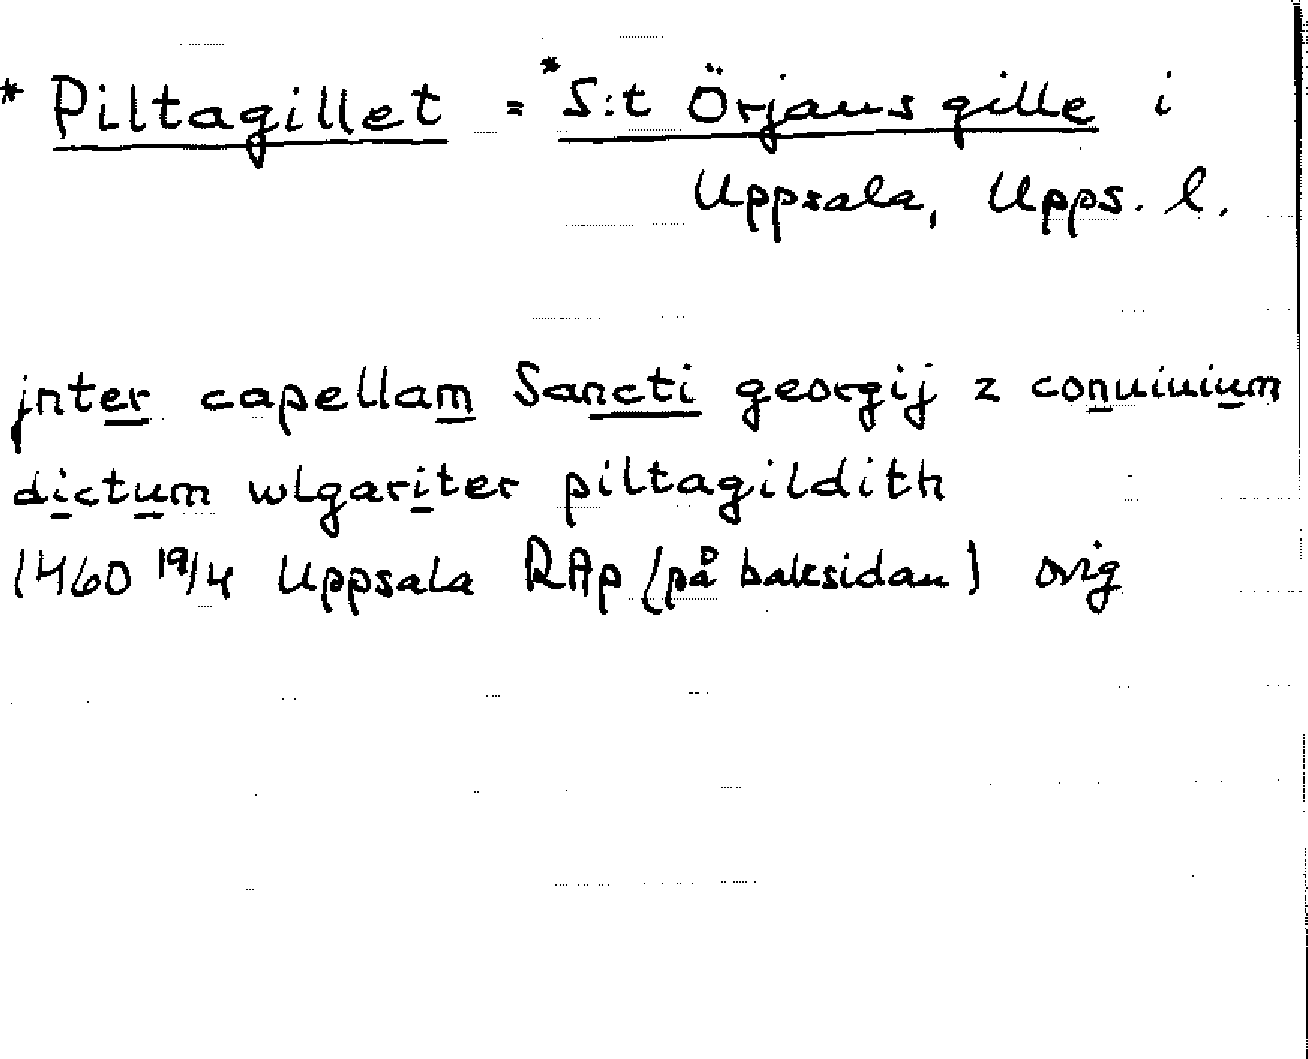 * Piltagillet = *S:t Örjans gille i
Uppsala, Upps. l.
jnter capellam Sancti georgij z conuiuium
dictum wlgariter piltagildith
1460 19/4 Uppsala RAp (på baksidan) orig